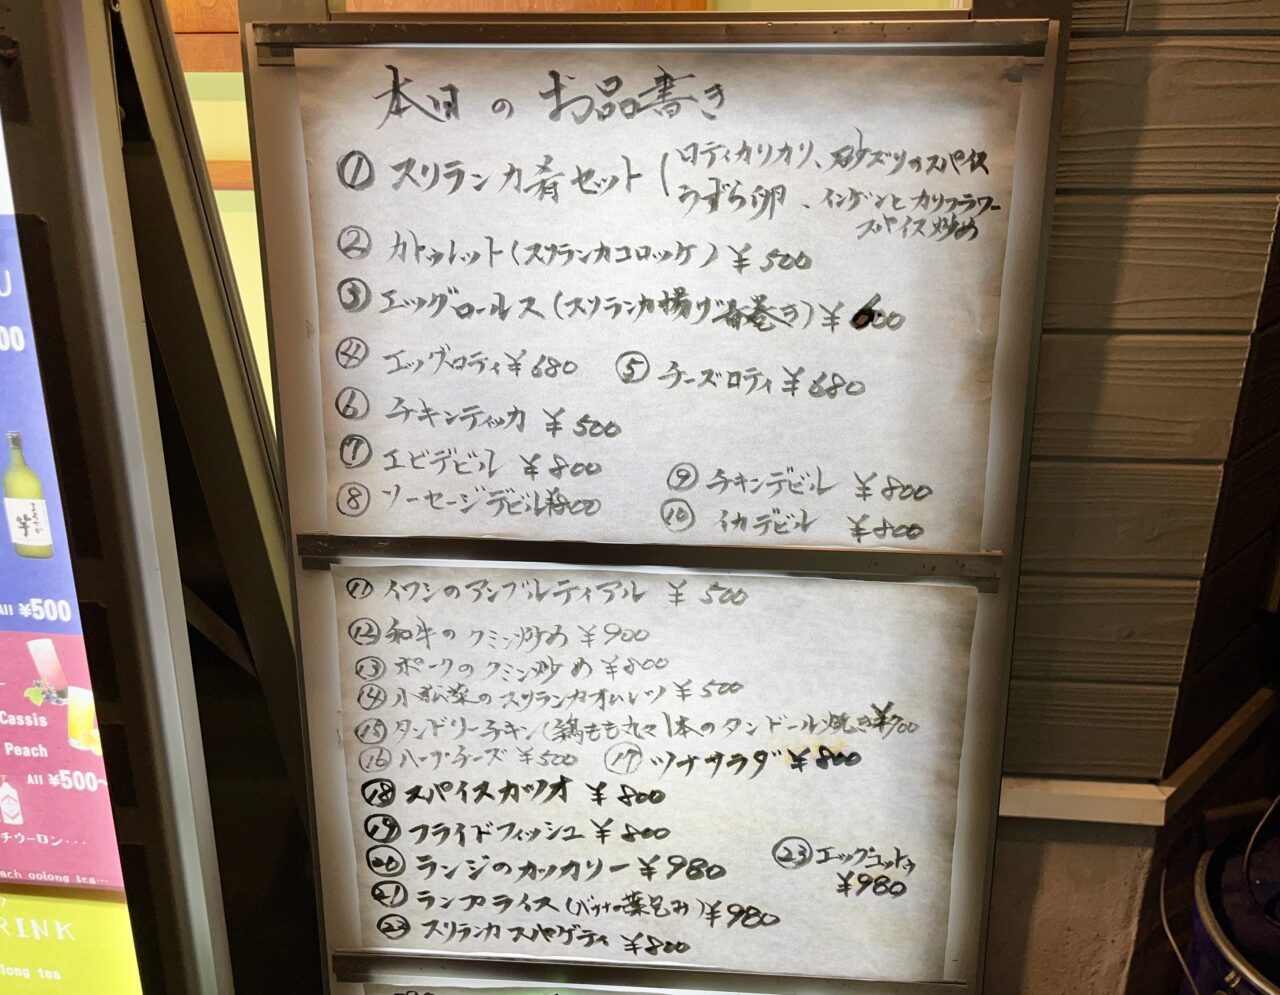 本日のお品書き
① スリランカ肴セット(ロティカリカリ、砂ズリのスパイス
うずら卵、インゲンとカリフラワー
スパイス炒め
② カトゥレット(スリランカコロッケ) ¥500
③ エッグロールス(スリランカ揚げ春巻き) ¥600
④ エッグロティ ¥680 ⑤ チーズロティ ¥680
⑥ チキンティッカ ¥500
⑦ エビデビル ¥800
⑧ ソーセージデビル ¥800
⑨ チキンデビル ¥800
⑩ イカデビル ¥800
⑪ イワシのアンブルティアル ¥500
⑫ 和牛のクミン炒め ¥900
⑬ ポークのクミン炒め ¥800
⑭ 小松菜のスリランカオムレツ ¥500
⑮ タンドリーチキン(鶏もも丸々1本のタンドール焼き ¥700
⑯ ハーブチーズ ¥500 ⑰ ツナサラダ ¥800
⑱ スパイスカツオ ¥800
⑲ フライドフィッシュ ¥800
⑳ ランジのカッカリー ¥980
㉑ ランプライス(バナナの葉包み) ¥980
スリランカスパゲティ ¥800
㉓ エッグコットゥ
¥980
00
All ¥500
Cassis
Peach
All ¥500~
チウーロン…
ach oolong tea…
RINK
long tea